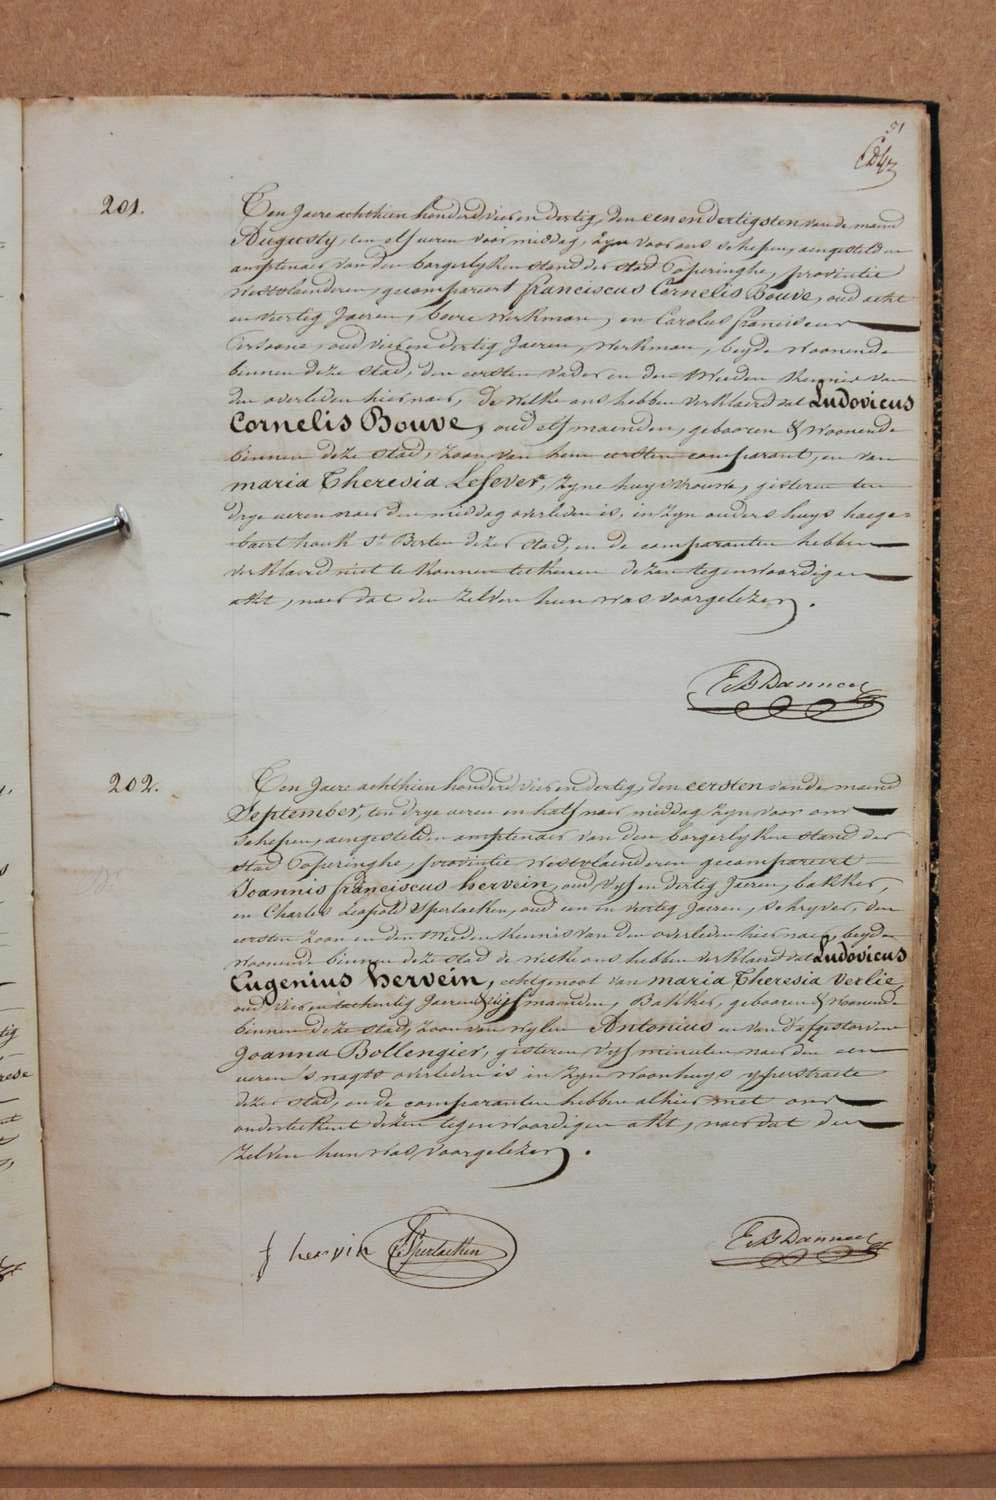 51
201.
Ten Jaere achthien honderd vier en dertig, den een en dertigsten van de maend
Augusty, ten elf ueren voor middag, zyn voor ons schepen, aengestelden
amptenaer van den borgerlyken stand der stad Poperinghe, provintie
Westvlaenderen, gecompareert franciscus Cornelis Bouve, oud acht
en veertig Jaeren, werkman, en Carolus franciscus
oud vier en dertig Jaeren, werkman, beyde woonende
binnen deze stad, den eersten vader en den tweeden kennis van
den overleden hier naer, de welke ons hebben verklaerd dat Ludovicus
Cornelis Bouve, oud elf maenden, gebooren & woonende
binnen deze stad, zoon van hem eersten comparant, en van
maria Theresia Lefever, zyne huysvrouwe, gisteren ten
drye ueren naer den middag overleden is, in zyn ouders huys haege-
baert houk St Berten dezer stad, en de comparanten hebben
verklaerd niet te konnen teekenen dezen tegenwoordigen
akt, naer dat den zelven hun was voorgelezen.
202.
Ten Jaere achthien honderd vier en dertig, den eersten van de maend
September, ten drye ueren en half naer middag zyn voor ons
schepen, aengestelden amptenaer van den borgerlyken stand der
stad Poperinghe, provintie Westvlaenderen gecompareert
Joannis franciscus hervein, oud vyf en dertig Jaeren, bakker,
en Charles Leopold Sperlaeken, oud een en veertig Jaeren, schryver, den
eersten zoon en den tweeden kennis van den overleden hier naer, beyde
woonende binnen deze stad de welke ons hebben verklaerd dat Ludovicus
Eugenius hervein, echtgenoot van maria Theresia Verlie,
oud vier en tachentig Jaeren & vyf maenden, Bakker, gebooren & woonende
binnen deze stad, zoon van wylen Antonius en van d'afgestorvene
Joanna Bollengier, gisteren vyf minuten naer den een
ueren 's nagts overleden is in zyn woonhuys yperstraete
dezer stad, en de comparanten hebben alhier met ons
onderteekent dezen tegenwoordigen akt, naer dat den
zelven hun was voorgelezen.
f hervin Sperlaeken